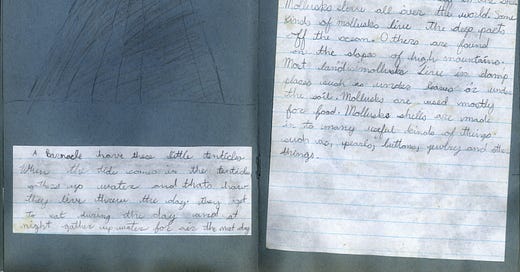 A Barnacle have these little tenticles
When the tide comes in the tenticle
gathers up water and thats how
they live threw the day they get
to eat during the day and at
night gather up water for air the next day
Mollusks live all over the world. Some
kinds of mollusks live the deep parts
off the ocean. Others are found
on the slopes of high mountains.
Most land mollusks live in damp
places such as under leaves or under
the soil. Mollusks are used mostly
for food. Mollusks shells are made
in to many useful kinds of things
such as, pearls, buttons, jewlry and other
things.